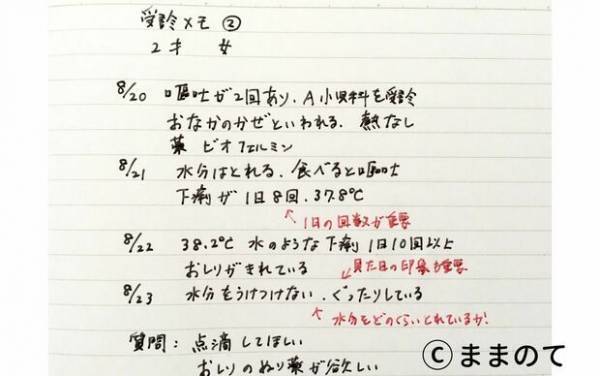 受診メモ ②
2才 女
8/20 嘔吐が2回あり、A小児科を受診
おなかのかぜといわれる. 熱なし
薬 ビオフェルミン
8/21 水分はとれる. 食べると嘔吐
下痢が1日8回. 37.8℃
↖1日の回数が重要
8/22 38.2℃ 水のような下痢1日10回以上
おしりがきれている ↙見た目の印象も重要
8/23 水分をうけつけない. ぐったりしている
↖水分をどのくらいとれているか!
質問: 点滴してほしい
おしりのぬり薬が欲しい
©ままのて